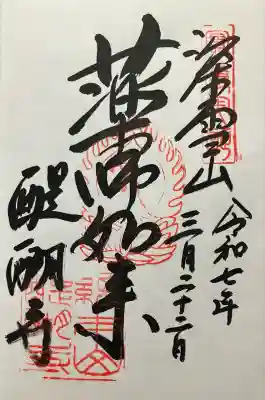 深雪山
令和七年
三月二十二日
薬師如来
醍醐寺